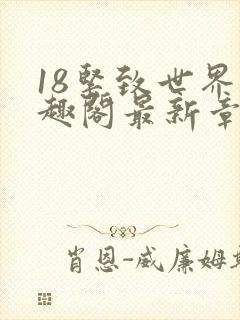 18坚致世界
趣阁最新章
肖恩-威廉姆